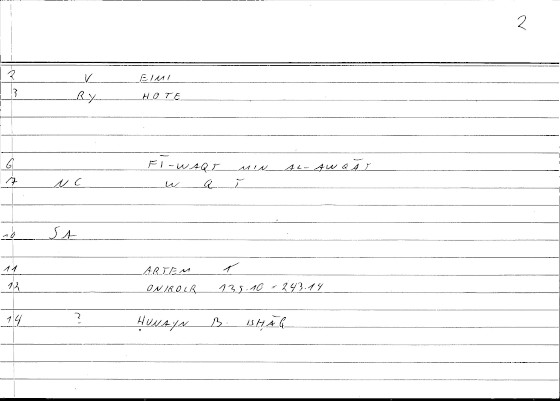 2
2 V EIMI
3 RY HOTE
6 FĪ-WAQT MIN AL-AWQĀT
7 NC W Q T
10 SA
11 ARTEM T
12 ONIROCR 139.10 - 243.14
14 ? ḤUNAYN B. ISḤĀQ